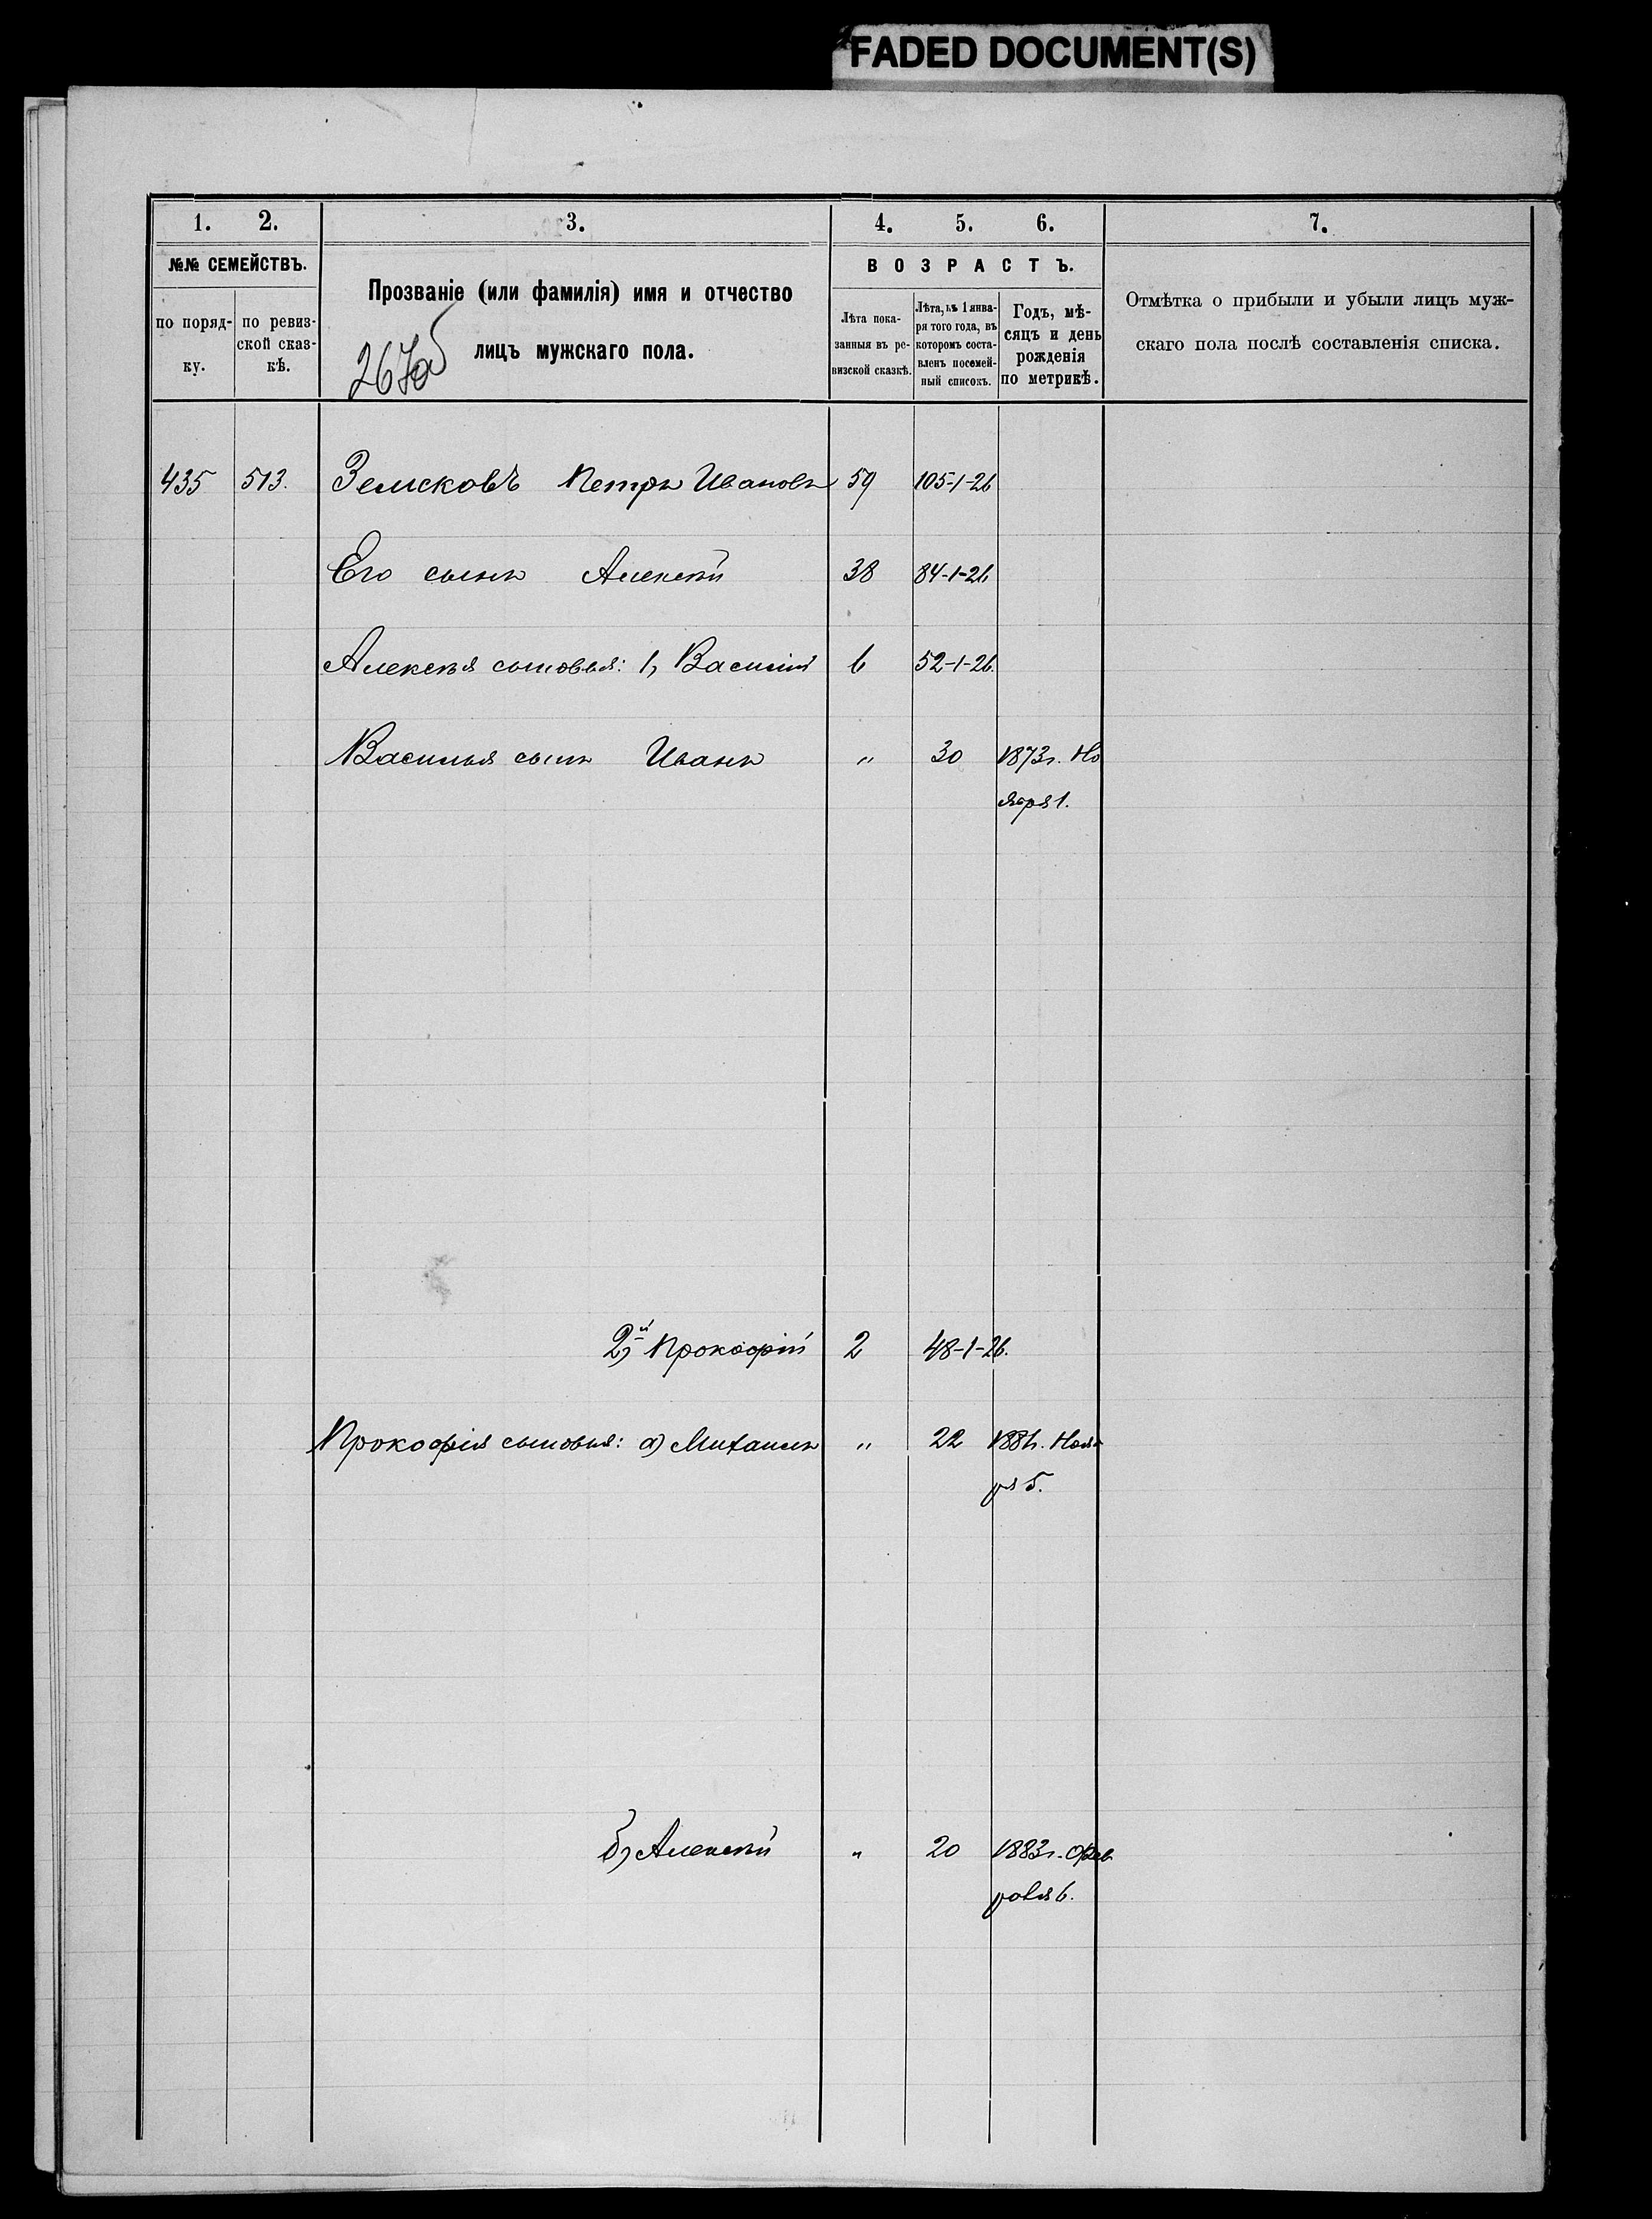 FADED DOCUMENT(S)
1. 2. 3. 4. 5. 6. 7.
№№ СЕМЕЙСТВЪ.
по поряд-
ку.
по ревиз-
ской сказ-
кѣ.
Прозваніе (или фамилія) имя и отчество
лицъ мужскаго пола.
267об
ВОЗРАСТЪ.
Лѣта пока-
занныя въ ре-
визской сказкѣ.
Лѣта, къ 1 янва-
ря того года, въ
которомъ соста-
вленъ посемей-
ный списокъ.
Годъ, мѣ-
сяцъ и день
рожденія
по метрикѣ.
Отмѣтка о прибыли и убыли лицъ муж-
скаго пола послѣ составленія списка.
435 513. Земсковъ Петръ Ивановъ 59 105-1-26
Его сынъ Алексѣй 38 84-1-26
Алексѣя сыновья: 1, Василій 6 52-1-26.
Василья сынъ Иванъ „ 30 1873г. Но
ября 1.
2й, Прокофій 2 48-1-26.
Прокофія сыновья: а) Михаилъ „ 22 1881г. Нояб
ря 5.
б) Алексѣй „ 20 1883г. Фев
раля 6.